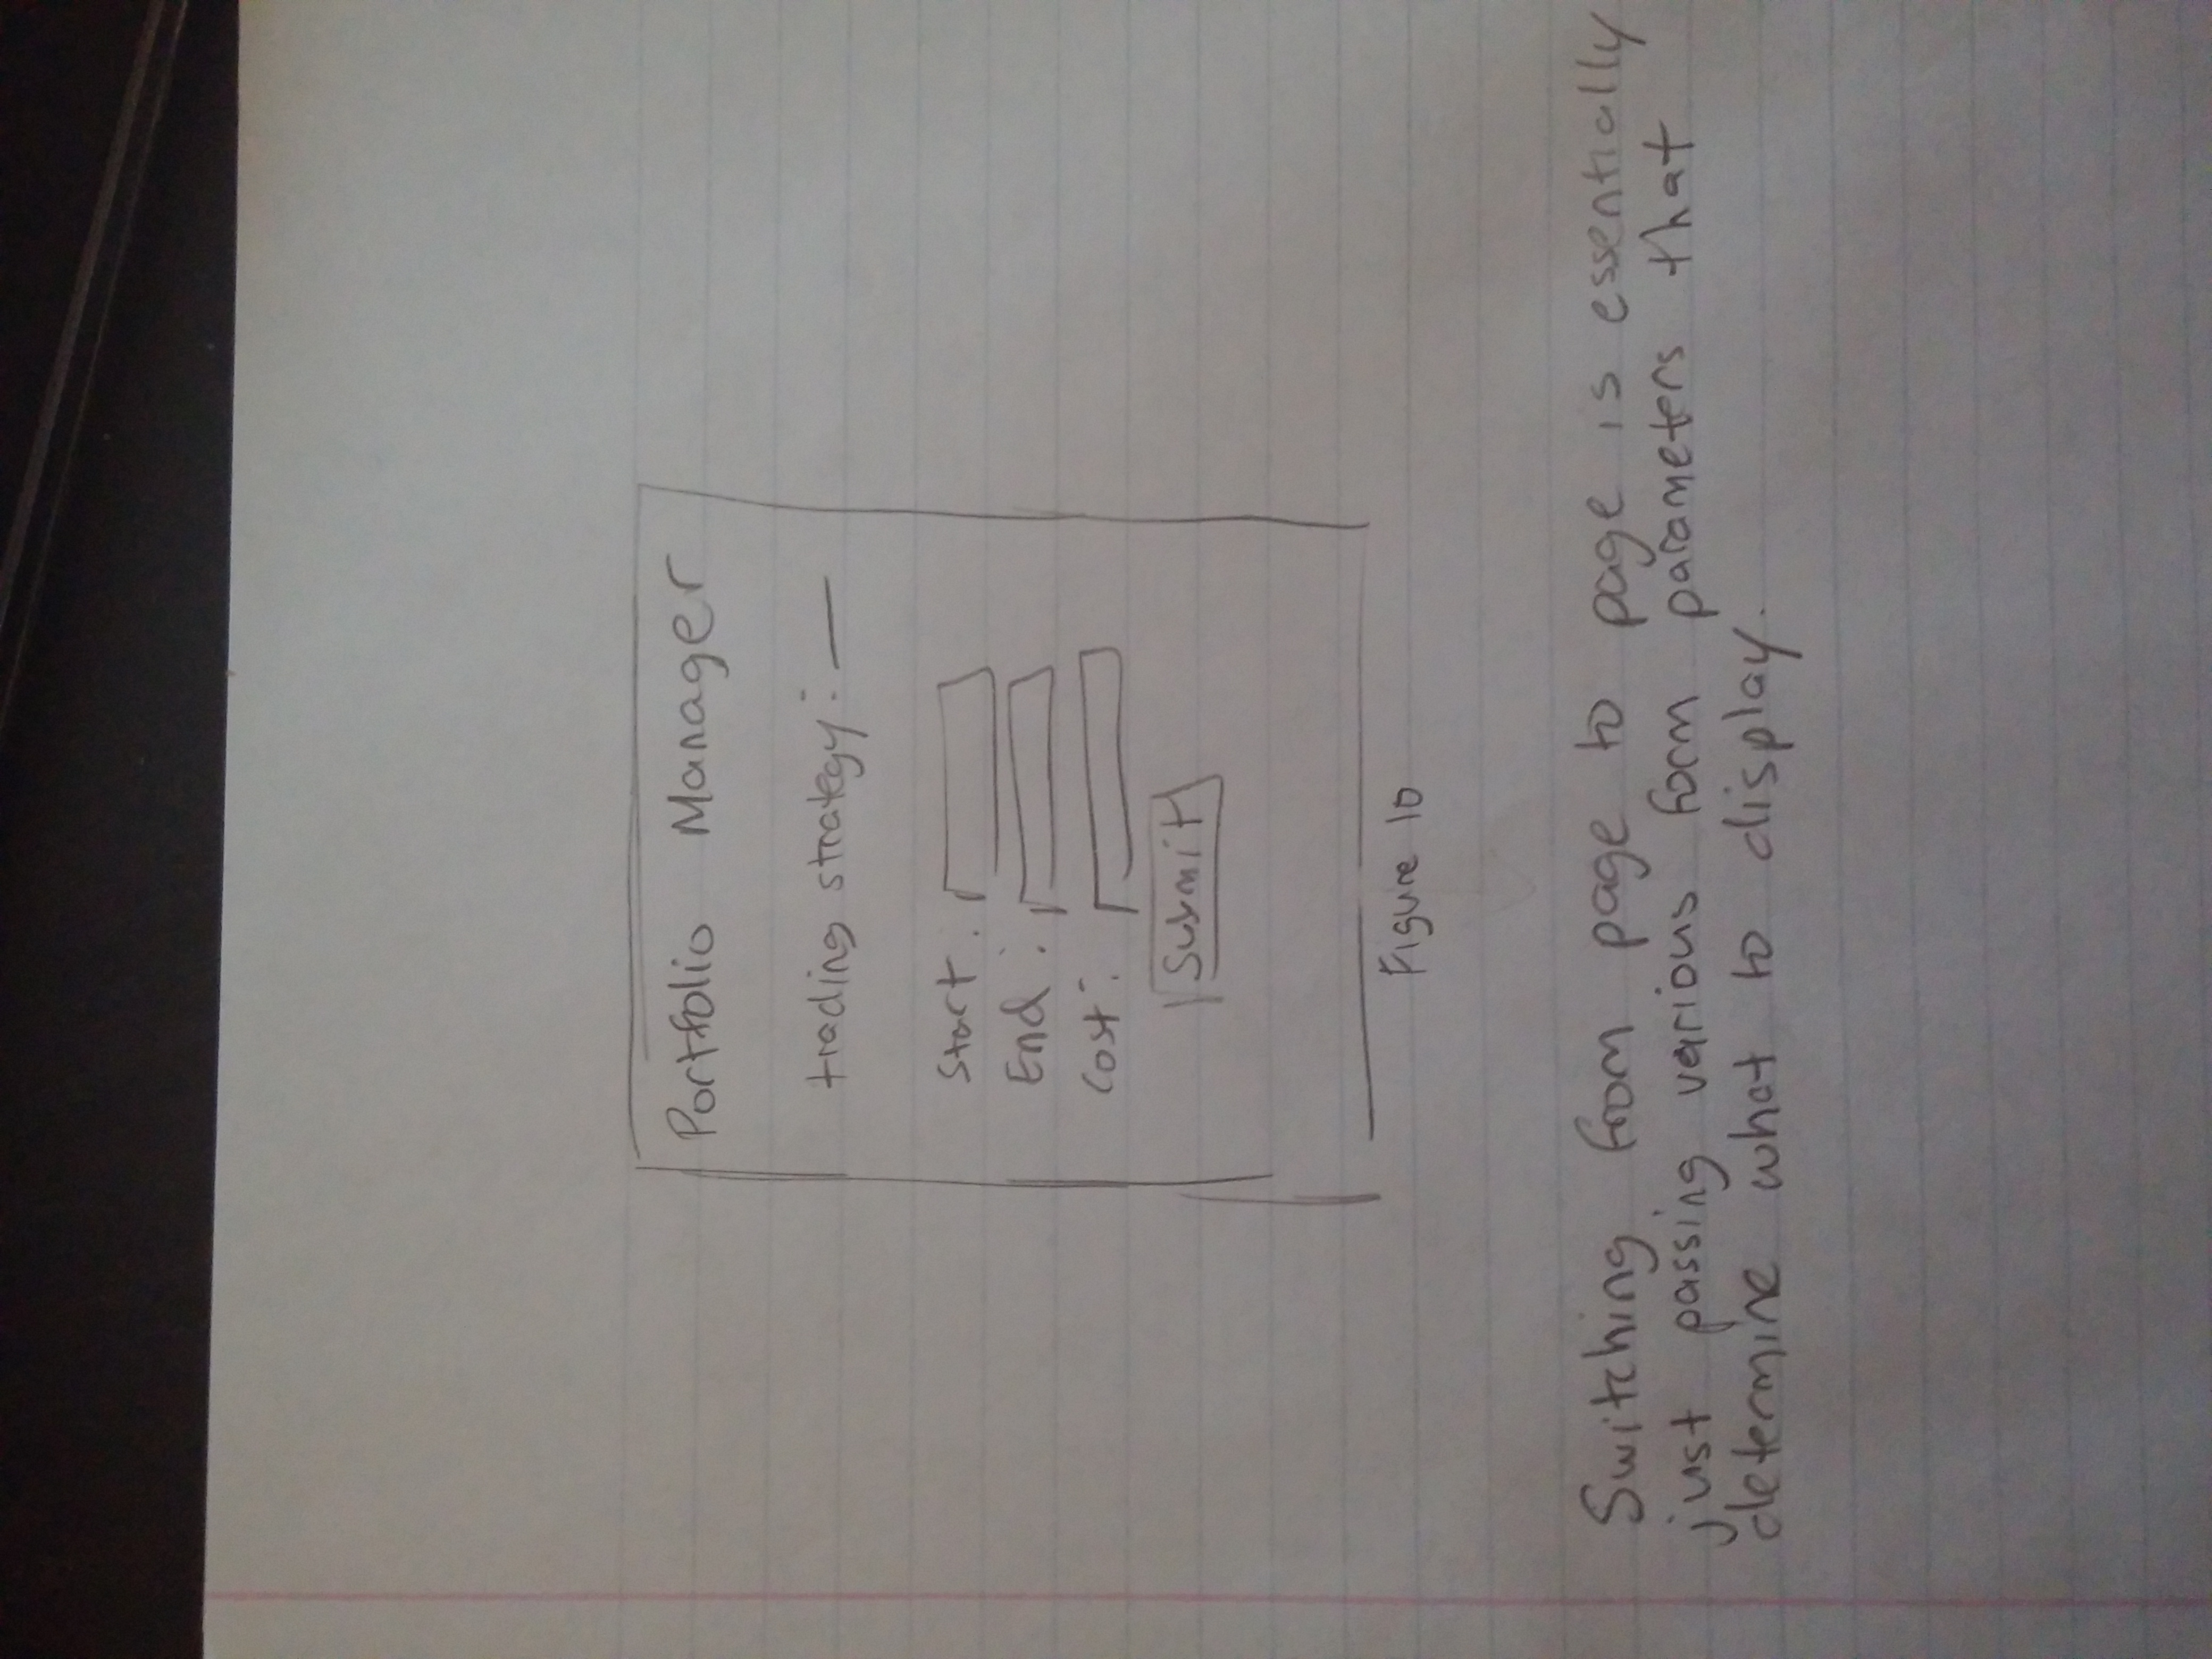 Portfolio Manager
trading strategy: —
Start:
End:
Cost:
Submit
Figure 10
Switching from page to page is essentially
just passing various form parameters that
determine what to display.